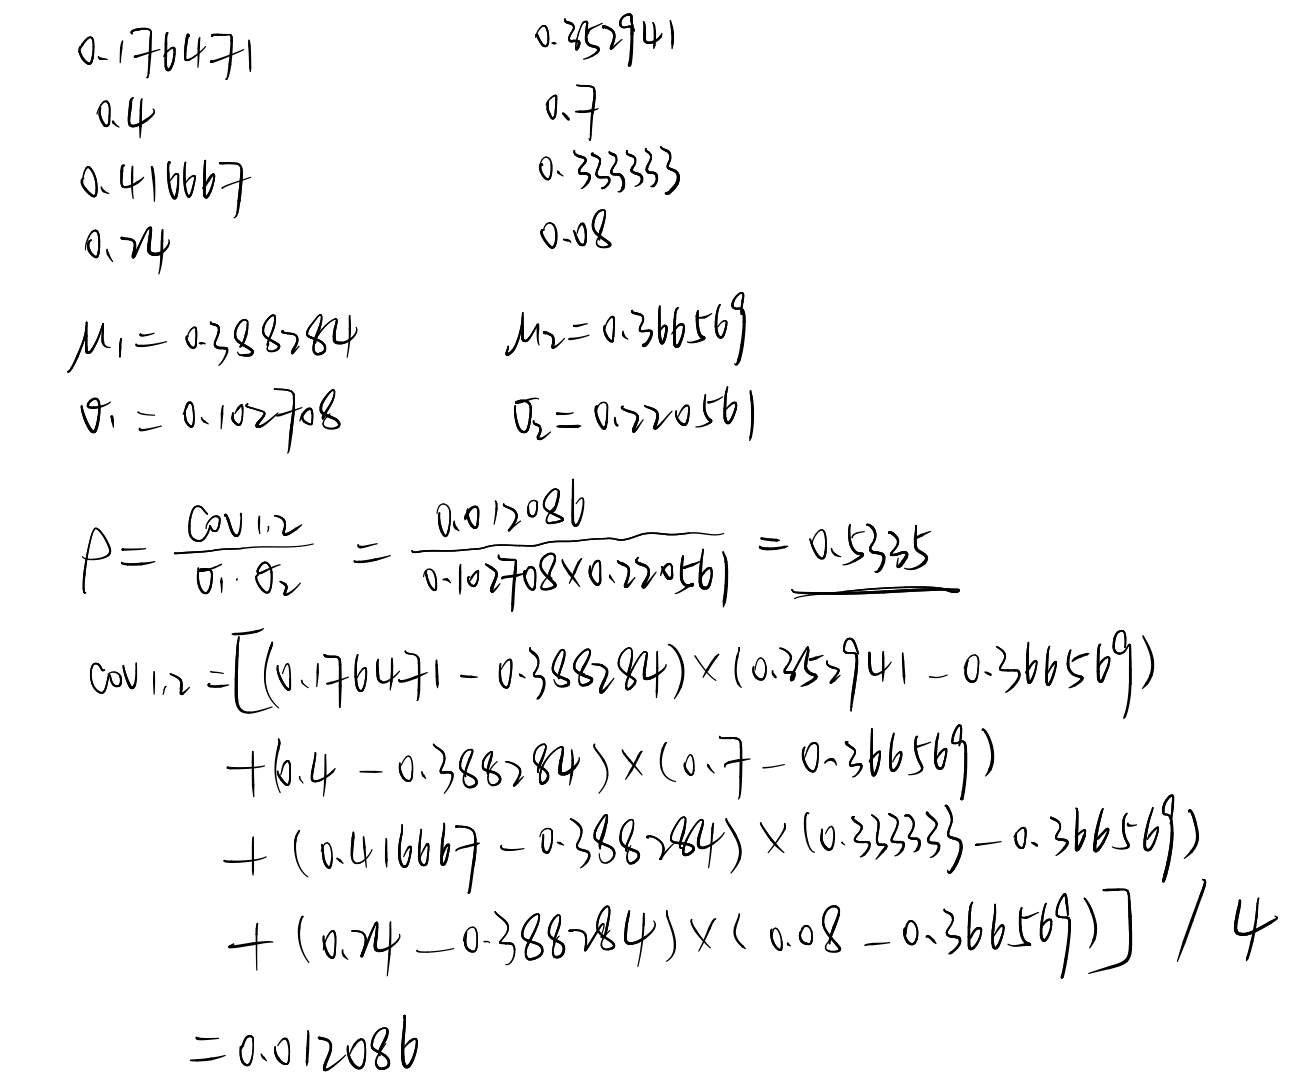 0.176471 0.352941
0.4 0.7
0.416667 0.333333
0.24 0.08
μ₁ = 0.388284 μ₂ = 0.366569
σ₁ = 0.102708 σ₂ = 0.220561
ρ = cov 1,2 / σ₁·σ₂ = 0.012086 / 0.102708×0.220561 = 0.5335
cov 1,2 = [(0.176471 - 0.388284) × (0.352941 - 0.366569)
+ (0.4 - 0.388284) × (0.7 - 0.366569)
+ (0.416667 - 0.388284) × (0.333333 - 0.366569)
+ (0.24 - 0.388284) × (0.08 - 0.366569)] / 4
= 0.012086